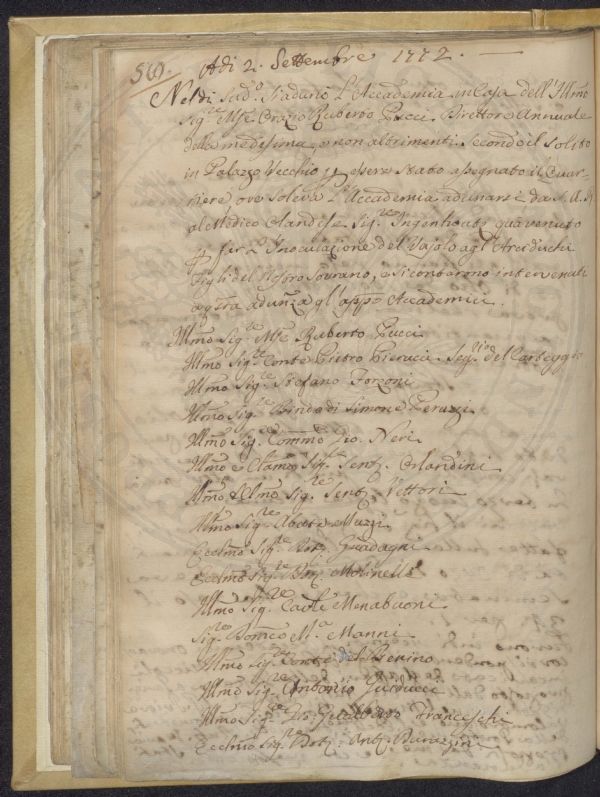 Adì 2. Settembre 1772.
Nel dì Sud.º s'adunò L'Accademia in Casa dell'Illmo
Sig.re Mse Orazio Ruberto Pucci Direttore Annuale
della medesima, e non altrimenti secondo il solito
in Palazzo Vecchio p essere stato assegnato il Quar-
tiere, ove soleva L'Accademia adunarsi da S. A. R.
al Medico Olandese Sig.re Ingenhouts qua venuto
p far L'Inoculazione del Vajolo agl'Arciduchi
Figli del Nostro Sovrano, e si contarono intervenuti
a q.ta adunza gl'app.o Accademici.
Illmo Sig.re Mse Ruberto Pucci
Illmo Sig.re Conte Pietro Pierucci Seg.rio del Carteggio
Illmo Sig.re Stefano Forzoni
Illmo Sig.re Bindo di Simone Peruzzi
Illmo Sig. Commo Gio. Neri
Illmo e Clamo Sig.re Senre Orlandini
Illmo e Clmo Sig.re Senre Vettori
Illmo Sig.re Abate
Eccelmo Sig.re Dott. Guadagni
Eccelmo Sig.re Dott. Molinelli
Illmo Sig.re Cavle Menabuoni
Sig.re Domco M.a Manni
Illmo Sig.re Conte del Benino
Illmo Sig.re Antonio Guiducci
Illmo Sig.re Gio: Gualberto Franceschi
Eccelmo Sig.re Dott: Ant.